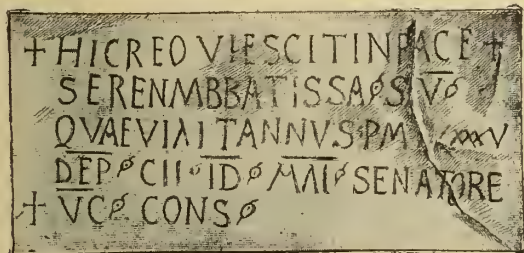 + HICREQVIESCITINPACE +
SERENMBBATISSA S V
QVAEVIXITANNVS PM LXXXV
DEP CII ID MAI SENATORE
+ VC CONS